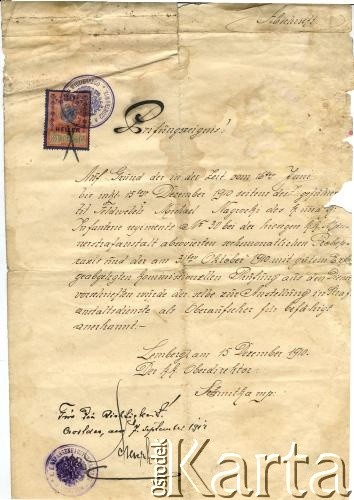 Abschrift
30
HELLER
Prüfungszeugnis!
Auf Grund der in der Zeit vom 16ten Juni
bis inkl. 15ten Dezember 1910 seitens des
tit. Feldwebels Michael Nagorski des k und k
Infanterie regiments No 30 bei der hiesigen k.k. Männer
strafanstalt absolvierten sechsmonatlichen Probe
praxis und der am 31ten Oktober 1910 mit gutem Erfolge
abgelegten kommissionellen Prüfung aus den Dienst
vorschriften wurde derselbe zur Anstellung im Straf
anstaltsdienste als Oberaufseher für befähigt
anerkannt.-
Lemberg, am 15 Dezember 1910.
Der k.k. Oberdirektor:
Für die Richtigkeit:
am 7. September 1911
ośrodek
Karta